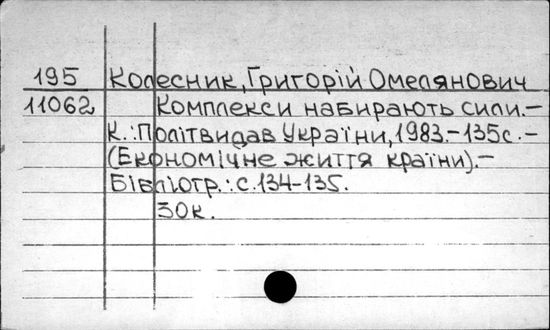 195 Колесник, Григорій Омелянович
11062 Комплекси набирають сили.–
К.: Політвидав України, 1983.–135с.–
(Економічне життя країни).–
Бібліогр.: с.134–135.
30к.